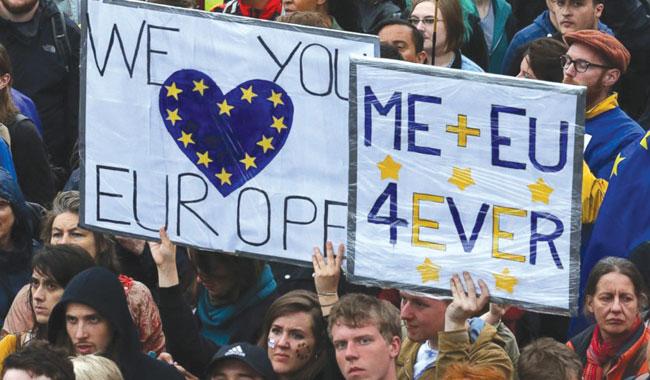 WE YOU
EUROPE
ME+EU
4EVER